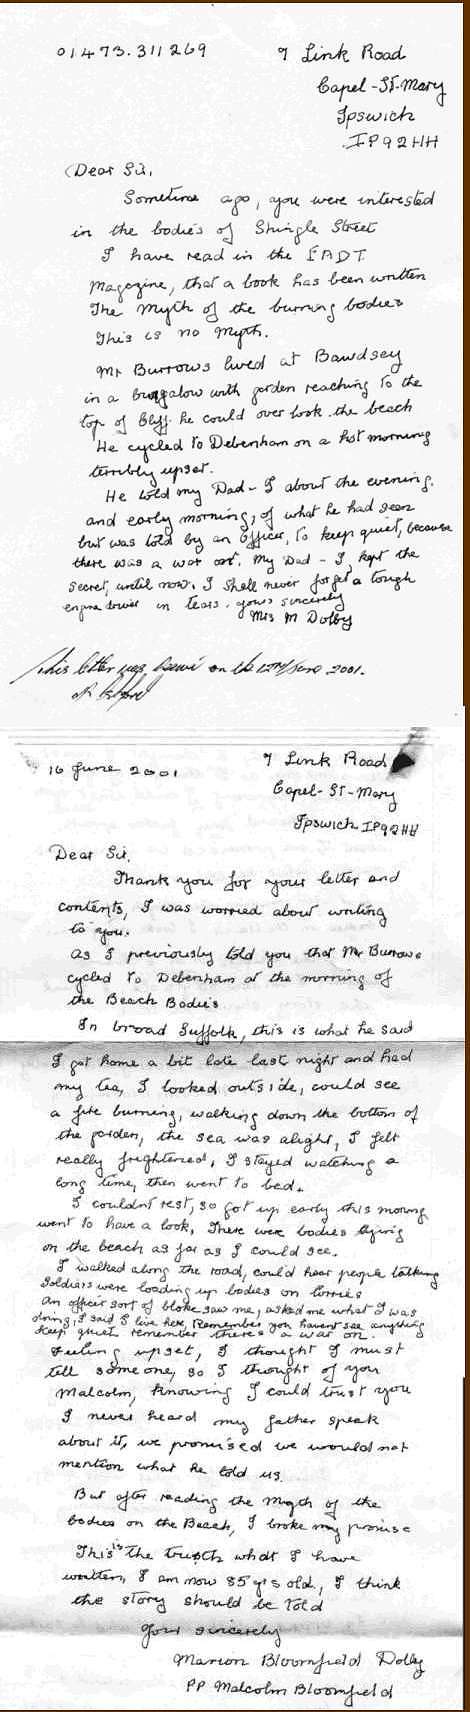 01473.311269
7 Link Road
Capel-St-Mary
Ipswich
IP92HH
Dear Sir,
Sometime ago, you were interested
in the bodies of Shingle Street
I have read in the EADT
Magazine, that a book has been written
The Myth of the burning bodies
This is no Myth.
Mr Burrows lived at Bawdsey
in a bungalow with garden reaching to the
top of Cliff. he could over look the beach
He cycled to Debenham on a hot morning
terribly upset.
He told my Dad - I about the evening,
and early morning, of what he had seen
but was told by an officer, to keep quiet, because
there was a war on. My Dad - I, kept the
secret, until now. I shall never forget a tough
engine driver in tears. yours sincerely
Mrs M Dolby
This letter was on the 12th June 2001.
16 June 2001
7 Link Road
Capel-St-Mary
Ipswich IP92HH
Dear Sir,
Thank you for your letter and
contents, I was worried about writing
to you.
As I previously told you that Mr Burrows
cycled to Debenham at the morning of
the Beach Bodies
In broad Suffolk, this is what he said
I got home a bit late last night and had
my tea, I looked outside, could see
a fire burning, walking down the bottom of
the garden, the sea was alight, I felt
really frightened, I stayed watching a
long time, then went to bed.
I couldnt rest, so got up early this morning
went to have a look, There were bodies lying
on the beach as far as I could see.
I walked along the road, could hear people talking
Soldiers were loading up bodies on lorries
An officer sort of bloke saw me, asked me what I was
doing, I said I live here, Remember you havent see anything
Keep quiet remember there's a war on.
Feeling upset, I thought I must
tell someone, so I thought of you
Malcolm, knowing I could trust you
I never heard my father speak
about it, we promised we would not
mention what he told us.
But after reading the Myth of the
bodies on the Beach, I broke my promise
This is the truth what I have
written, I am now 85 yrs old, I think
the story should be told
Yours sincerely
Marion Bloomfield Dolby
PP Malcolm Bloomfield